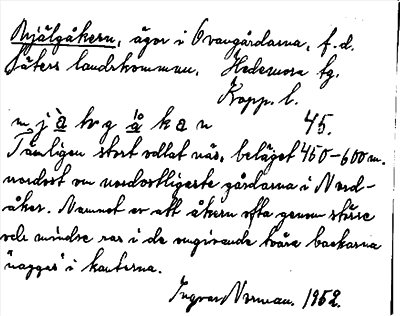 Mjälgåkern, ägor i Ovangårdarna, f.d.
Säters landskommun, Hedemora tg.
Kopp. l.
45.
Tämligen stort odlat när, beläget 450-600 m.
nordost om nordostligaste gårdarna i Nord-
åker. Namnet er att åkern ofta genom större
och mindre ras i de omgivande tvära backarna
"naggas" i kanterna.
Ingvar Norman. 1952.